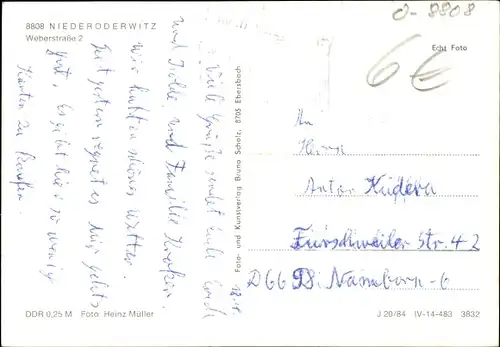 8808 NIEDERODERWITZ
Weberstraße 2
O-8808
Echt Foto
6€
Viele Grüße sendet Euch
und Isolde und Familie
Wir hatten schönes Wetter.
Seit gestern regnet es. Mir geht's
gut. Es gibt hier so wenig
Karten zu kaufen.
Foto- und Kunstverlag Bruno Scholz, 8705 Ebersbach
An
Herrn
Anton Kudera
Fürschweiler Str. 42
D66 Namborn-6
DDR 0,25 M Foto: Heinz Müller
J 20/84 IV-14-483 3832